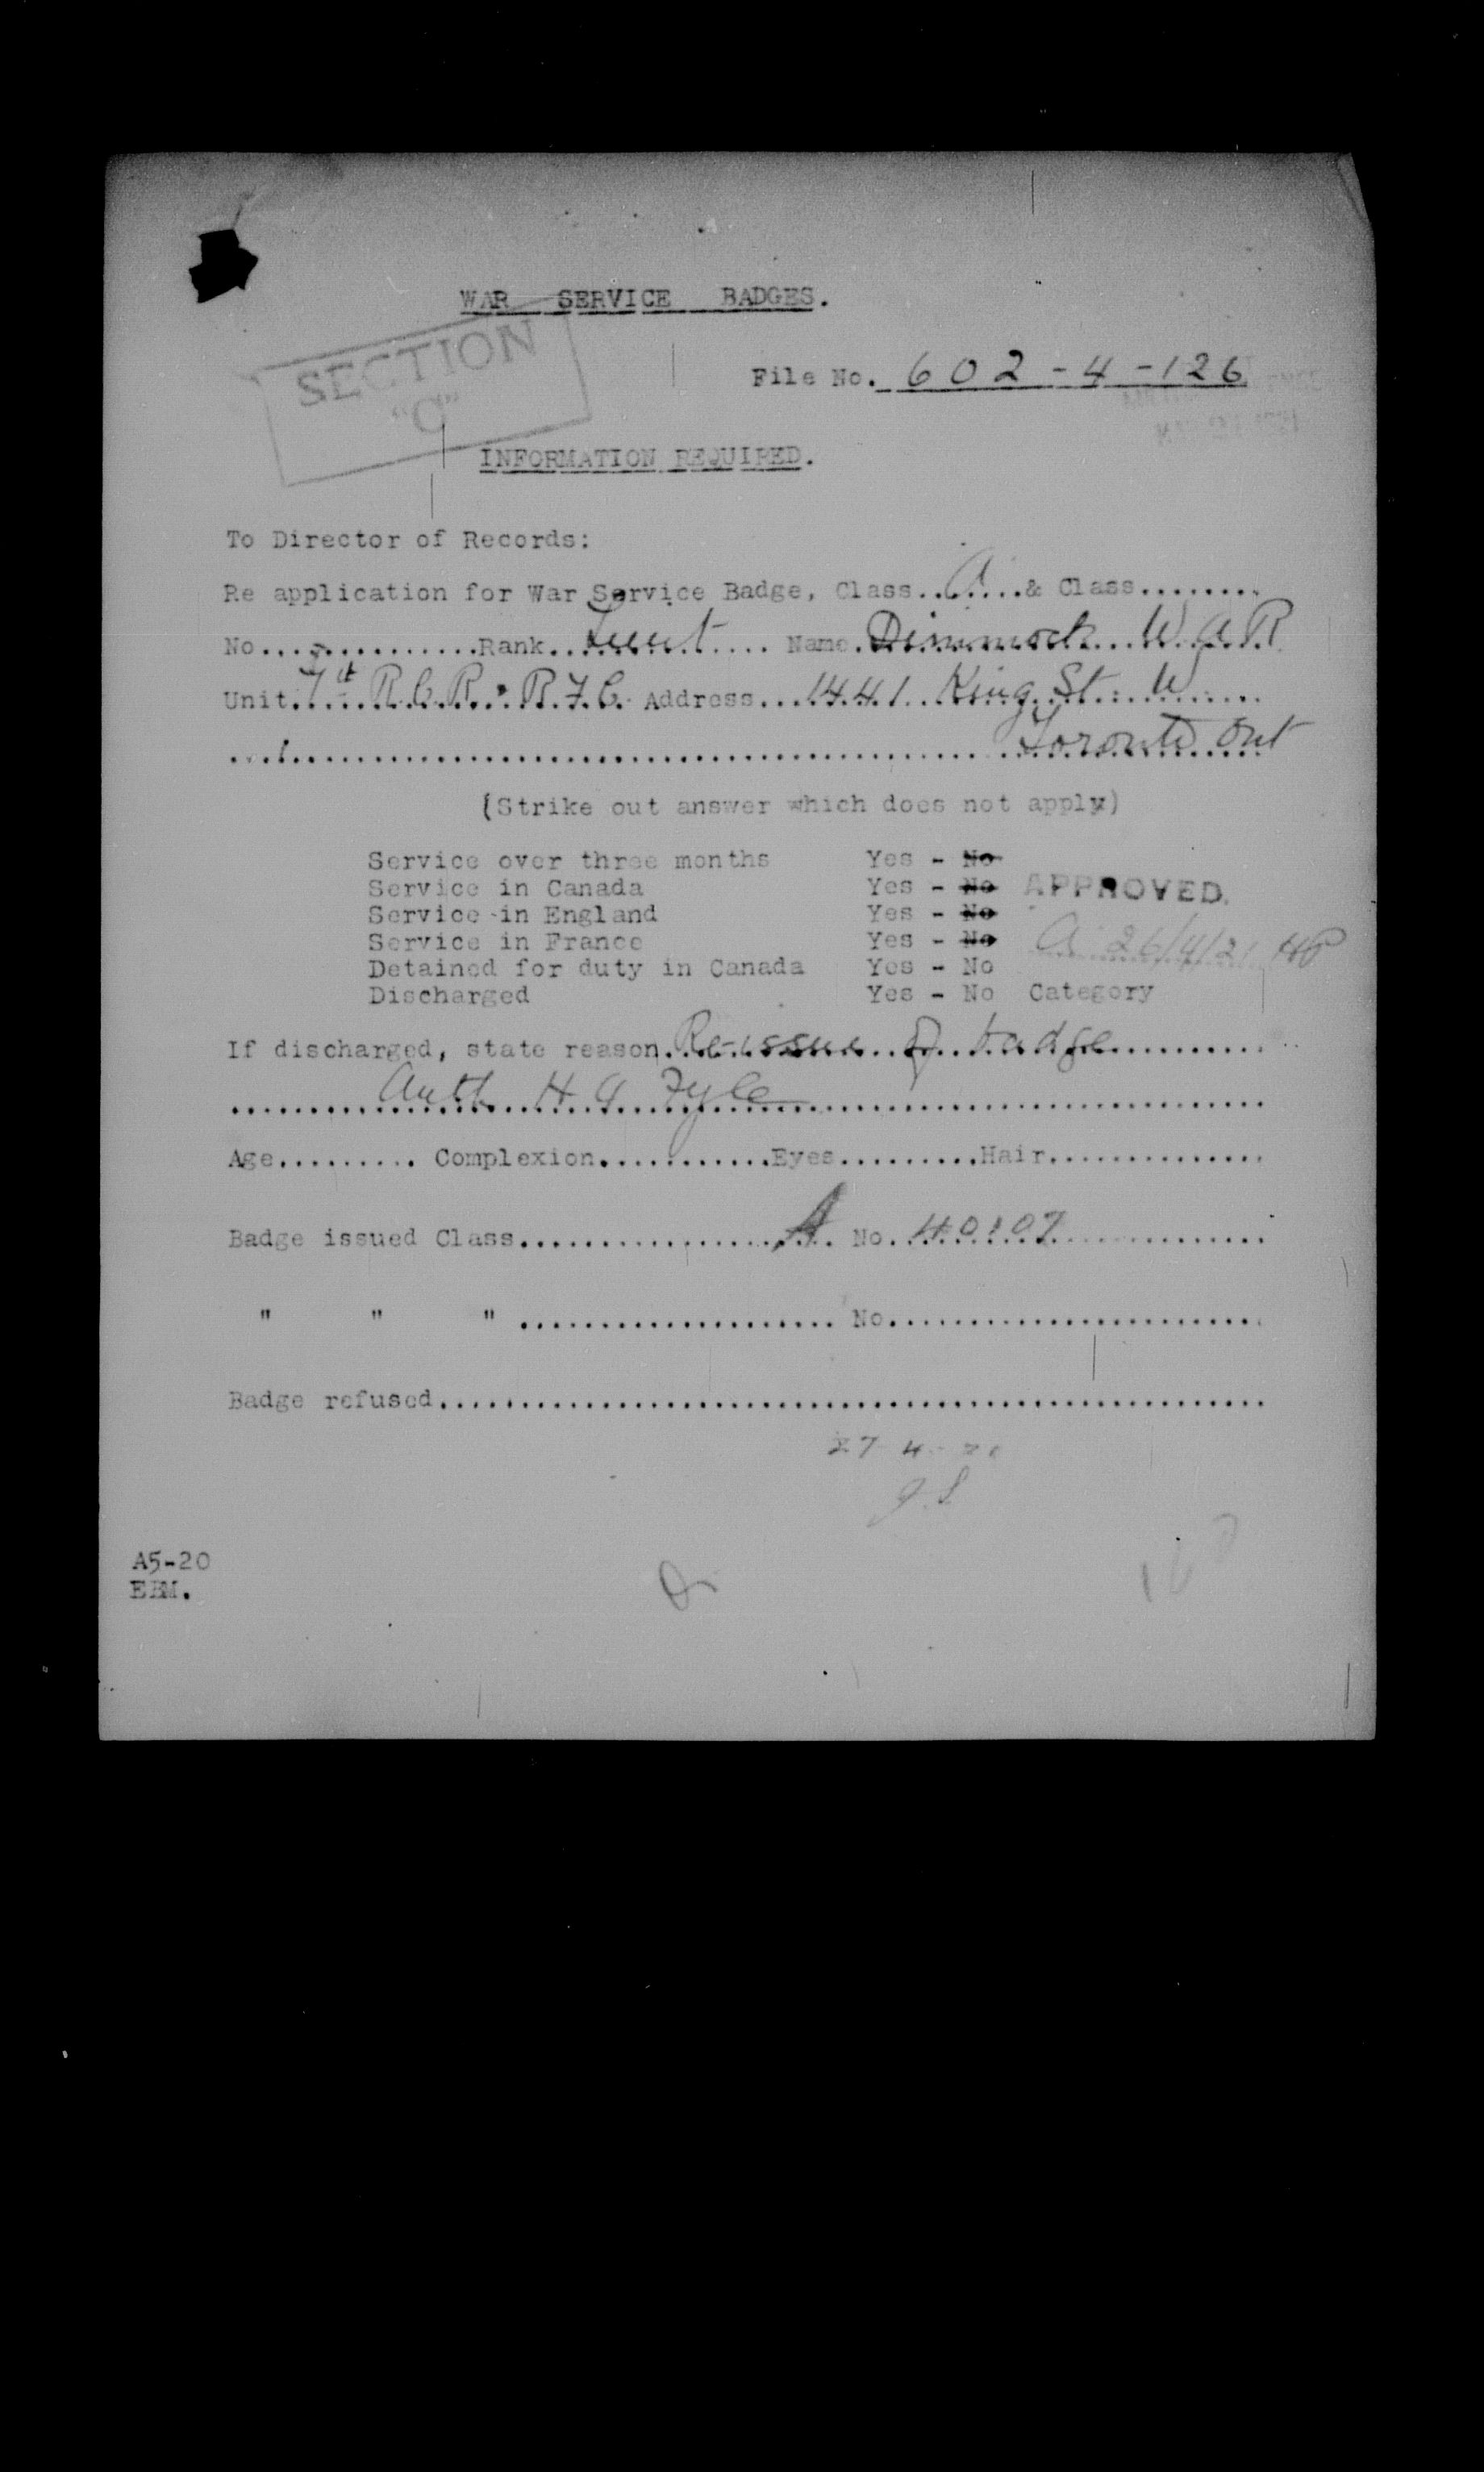 WAR SERVICE BADGES.
SECTION
"C"
File No. 602-4-126
INFORMATION REQUIRED.
To Director of Records:
Re application for War Service Badge, Class..A...& Class........
No..............Rank.Lieut.... Name.Dimmock...W.A.R.
Unit.7th R.C.R. R.F.C. Address...1441 King St. W
Toronto Ont
(Strike out answer which does not apply)
Service over three months Yes - No
Service in Canada Yes - No APPROVED.
Service in England Yes - No
Service in France Yes - No A 26/4/21
Detained for duty in Canada Yes - No
Discharged Yes - No Category
If discharged, state reason.Re-issue of badge
Auth H Q Fyle
Age......... Complexion...........Eyes.........Hair..............
Badge issued Class....................A No. 40107
" " " .................... No.......................
Badge refused....................................................
27 4
A5-20